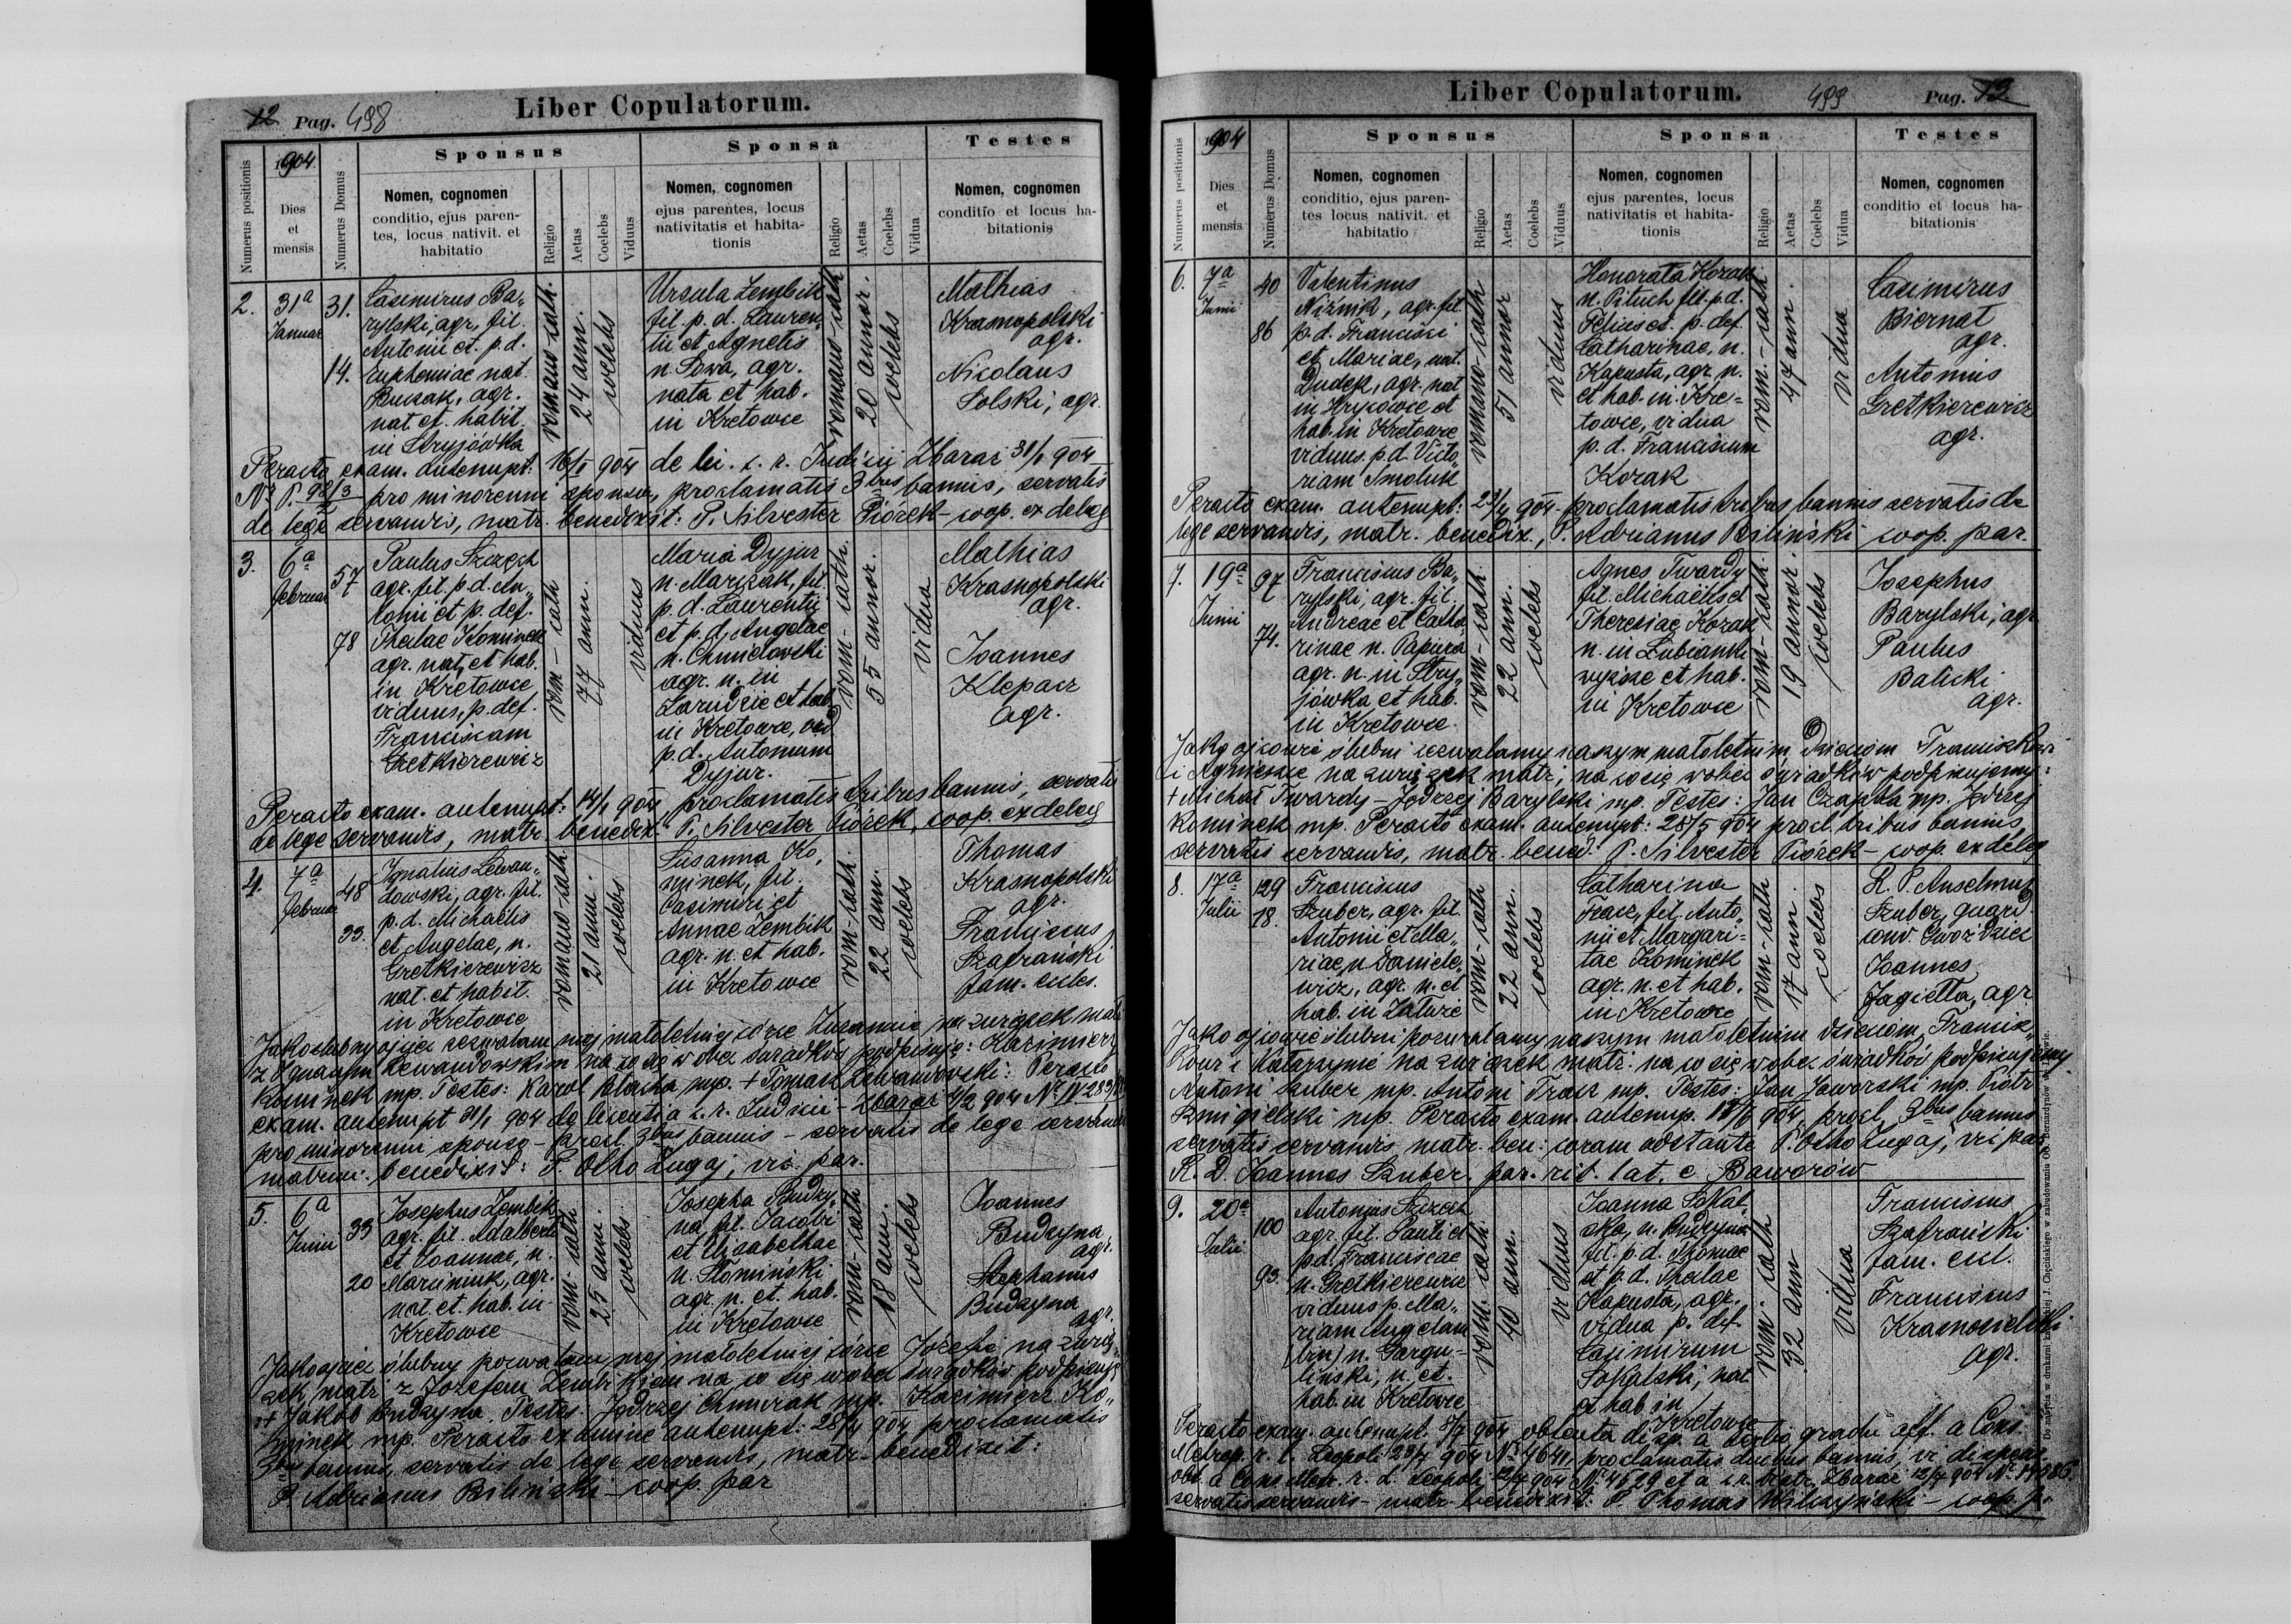 12 Pag. 498
Liber Copulatorum.
1904
Numerus positionis
Dies
et
mensis
Numerus Domus
Sponsus
Nomen, cognomen
conditio, ejus paren-
tes, locus nativit. et
habitatio
Religio
Aetas
Coelebs
Viduus
Sponsa
Nomen, cognomen
ejus parentes, locus
nativitatis et habita-
tionis
Religio
Aetas
Coelebs
Vidua
Testes
Nomen, cognomen
conditio et locus ha-
bitationis
2.
31a
Januar
31.
14.
Casimirus Ba„
rylski, agr. fil.
Antonii et p. d.
Euphemiae nat.
agr.
nat. et habit.
in Stryjówka
romano-cath.
24 ann.
coelebs
Ursula Zembik
fil. p. d. Lauren„
tii et Agnetis
n. Sowa, agr.
nata et hab.
in Kretowce
romano-cath
20 annor.
coelebs
Mathias
Krasnopolski
agr.
Nicolaus
Solski, agr.
Peracto exam. antenupt. 16/1 904 de lic. c. r. Judicii Zbaraż 31/1 904
pro minorenni sponsa, proclamatis 3bus bannis, servatis
de lege servandis, matr. benedixit: P. Silvester Piórek - coop. ex deleg
3.
6a
Februar
57
78
Paulus Szczech
agr. fil. p. d. An„
tonii et p. def.
Theclae Kominek
agr. nat. et hab.
in Kretowce
viduus, p. def.
Franciscam
Gretkierewicz
rom - cath
77 ann.
viduus
Maria Dyjur
n. Marczak, fil.
p. d. Laurentii
et p. d. Angelae
n. Chmielowski
agr. n. in
Zarudzie et hab.
in Kretowce, vid
p. d. Antonium
Dyjur.
rom - cath.
55 annor.
vidua
Mathias
Krasnopolski
agr.
Joannes
Klepacz
agr.
Peracto exam. antenupt: 14/1 904 proclamatis tribus bannis, servatis
de lege servandis, matr. benedix. P. Silvester Piórek, coop. ex deleg
4.
7a
Februar
48
33.
Ignatius Lewan„
dowski, agr. fil.
p. d. Michaelis
et Angelae, n.
Gretkierewicz
nat. et habit.
in Kretowce
romano-cath.
21 ann.
coelebs
Susanna Ko„
minek, fil.
Casimiri et
Annae Zembik
agr. n. et hab.
in Kretowce
rom-cath.
22 ann.
coelebs
Thomas
Krasnopolski
agr.
Franciscus
Szafrański
fam. eccles.
Jako ślubny ojciec zezwalam mej małoletniej córce Zuzannie na związek matr
z Ignacym Lewandowskim na co się wobec świadków podpisuję: Kazimierz
Kominek mp. Testes: Karol Blacha mp. + Tomasz Lewandowski: Peracto
exam. antenupt 31/1 904 de licentia c. r. Judicii - Zbaraż 4/2 904
pro minorenni sponso - procl. 3bus bannis - servatis de lege servandis
matrim. benedixit: P. Otho Zugaj, vic. par.
5.
6a
Junii
33
20
Josephus Zembik
agr. fil. Adalberti
et Joannae, n.
Marciniuk, agr.
nat. et hab. in
Kretowce
rom - cath
25 ann.
coelebs
Josepha Budzy„
na, fil. Jacobi
et Elisabethae
n. Słomiński
agr. n. et. hab.
in Kretowce
rom - cath
18 ann.
coelebs
Joannes
Budzyna
agr.
Stephanus
Budzyna
agr.
Jako ojciec ślubny pozwalam mej małoletniej córce Józefie na zwią„
zek matr z Józefem Zembikiem na co się wobec świadków podpisuję
+ Jakób Budzyna. Testes. Jędrzej Chmurak mp. Kazimierz Ko„
minek mp. Peracto examine antenupt: 28/4 904 proclamatis
3bus bannis, servatis de lege servandis, matr. benedixit:
P. Adrianus Biliński - coop. par
Liber Copulatorum.
499 Pag. 13
1904
Numerus positionis
Dies
et
mensis
Numerus Domus
Sponsus
Nomen, cognomen
conditio, ejus paren-
tes locus nativit. et
habitatio
Religio
Aetas
Coelebs
Viduus
Sponsa
Nomen, cognomen
ejus parentes, locus
nativitatis et habita-
tionis
Religio
Aetas
Coelebs
Vidua
Testes
Nomen, cognomen
conditio et locus ha-
bitationis
6.
7a
Junii
40
86
Valentinus
Niżnik, agr. fil.
p. d. Francisci
et Mariae, nat.
Dudek, agr. nat
in Hrycowce et
hab. in Kretowce
viduus p. d. Victo„
riam Smoluk
romano-cath
51 annor
viduus
Honorata Kozak
n. Pituch fil. p. d.
Felicis et. p. def.
Catharinae, n.
Kapusta, agr n.
et hab. in. Kre=
towce, vidua
p. d. Franciscum
Kozak
rom. - cath
47 ann.
vidua
Casimirus
Biernat
agr.
Antonius
Gretkierewicz
agr.
Peracto exam. antenupt: 23/4 904 - proclamatis tribus bannis servatis de
lege servandis, matr. benedix., P. Adrianus Biliński coop. par.
7.
19a
Junii
97
74.
Franciscus Ba„
rylski, agr. fil.
Andreae et Catha„
rinae n. Papuza
agr. n. in Stry„
jówka et hab.
in Kretowce.
rom - cath.
22 ann.
coelebs
Agnes Twardy
fil. Michaelis et
Theresiae Kozak
n. in Łubianki
wyższe et hab.
in Kretowce
rom - cath.
19 annor.
coelebs
Josephus
Barylski, agr
Paulus
Balicki
agr.
Jako ojcowie ślubni zezwalamy naszym małoletnim dzieciom Franciszkowi
i Agnieszce na związek matr, na co się wobec świadków podpisujemy:
+ Michał Twardy - Jędrzej Barylski mp. Testes: Jan Czapla mp. Jędrzej
Kominek mp. Peracto exam. antenupt: 28/5 904 procl. tribus bannis,
servatis servandis, matr. bened. P. Silvester Piórek - coop. ex deleg
8.
17a
Julii
129
18.
Franciscus
Szuber, agr. fil.
Antonii et Ma„
riae, n. Daniele„
wicz, agr. n. et
hab. in Załuże
rom - cath
22 ann.
coelebs
Catharina
Tracz, fil. Anto„
nii et Margari=
tae Kominek
agr. n. et hab.
in Kretowce
rom - cath
17 ann.
coelebs
R. P. Anselmus
Szuber, quard.
conv. Gwoździec
Joannes
Jagiełła, agr
Jako ojcowie ślubni pozwalamy naszym małoletnim dzieciom, Francisz„
kowi i Katarzynie na związek matr: na co się wobec świadków podpisujemy
Antoni Szuber mp. Antoni Tracz mp. Testes: Jan Jaworski mp. Piotr
Śmigielski mp. Peracto exam. antenup. 904, procl. 3bus bannis
servatis servandis matr. ben: coram adstante P. Otho Zugaj, vic par
R. D. Joannes Szuber. par. rit. lat. e Baworów
9.
20a
Julii
100
93.
Antonius Szczech
agr. fil. Pauli et
p.d. Franciscae
n. Gretkierewicz
viduus p. Ma„
riam Angelam
(bin) n. Gargu-
liński, n. et.
hab. in Kretowce
rom. - cath
40 ann.
viduus
Joanna Sokal„
ska, n. Budzyna
fil. p. d. Thomae
et p. d. Theclae
Kapusta, agr.
vidua p. def.
Casimirum
Sokalski, nat.
et hab in
Kretowce
rom - cath
32 ann
vidua
Franciscus
Szafrański
fam. ecl.
Franciscus
Krasnosielski
agr.
Peracto exam. antenupt. 8/7 904 obtenta disp. a tertio gradu aff. a Cons.
Metrop. r. l. Leopoli 904 No 4641, proclamatis duobus bannis,
obt. a Cons. Metr. r. l. Leopoli 12/7 904 No 4629 et a Zbaraż 12/7 904
servatis servandis - matr. benedixit: P. Thomas Wilczyński - coop. p.